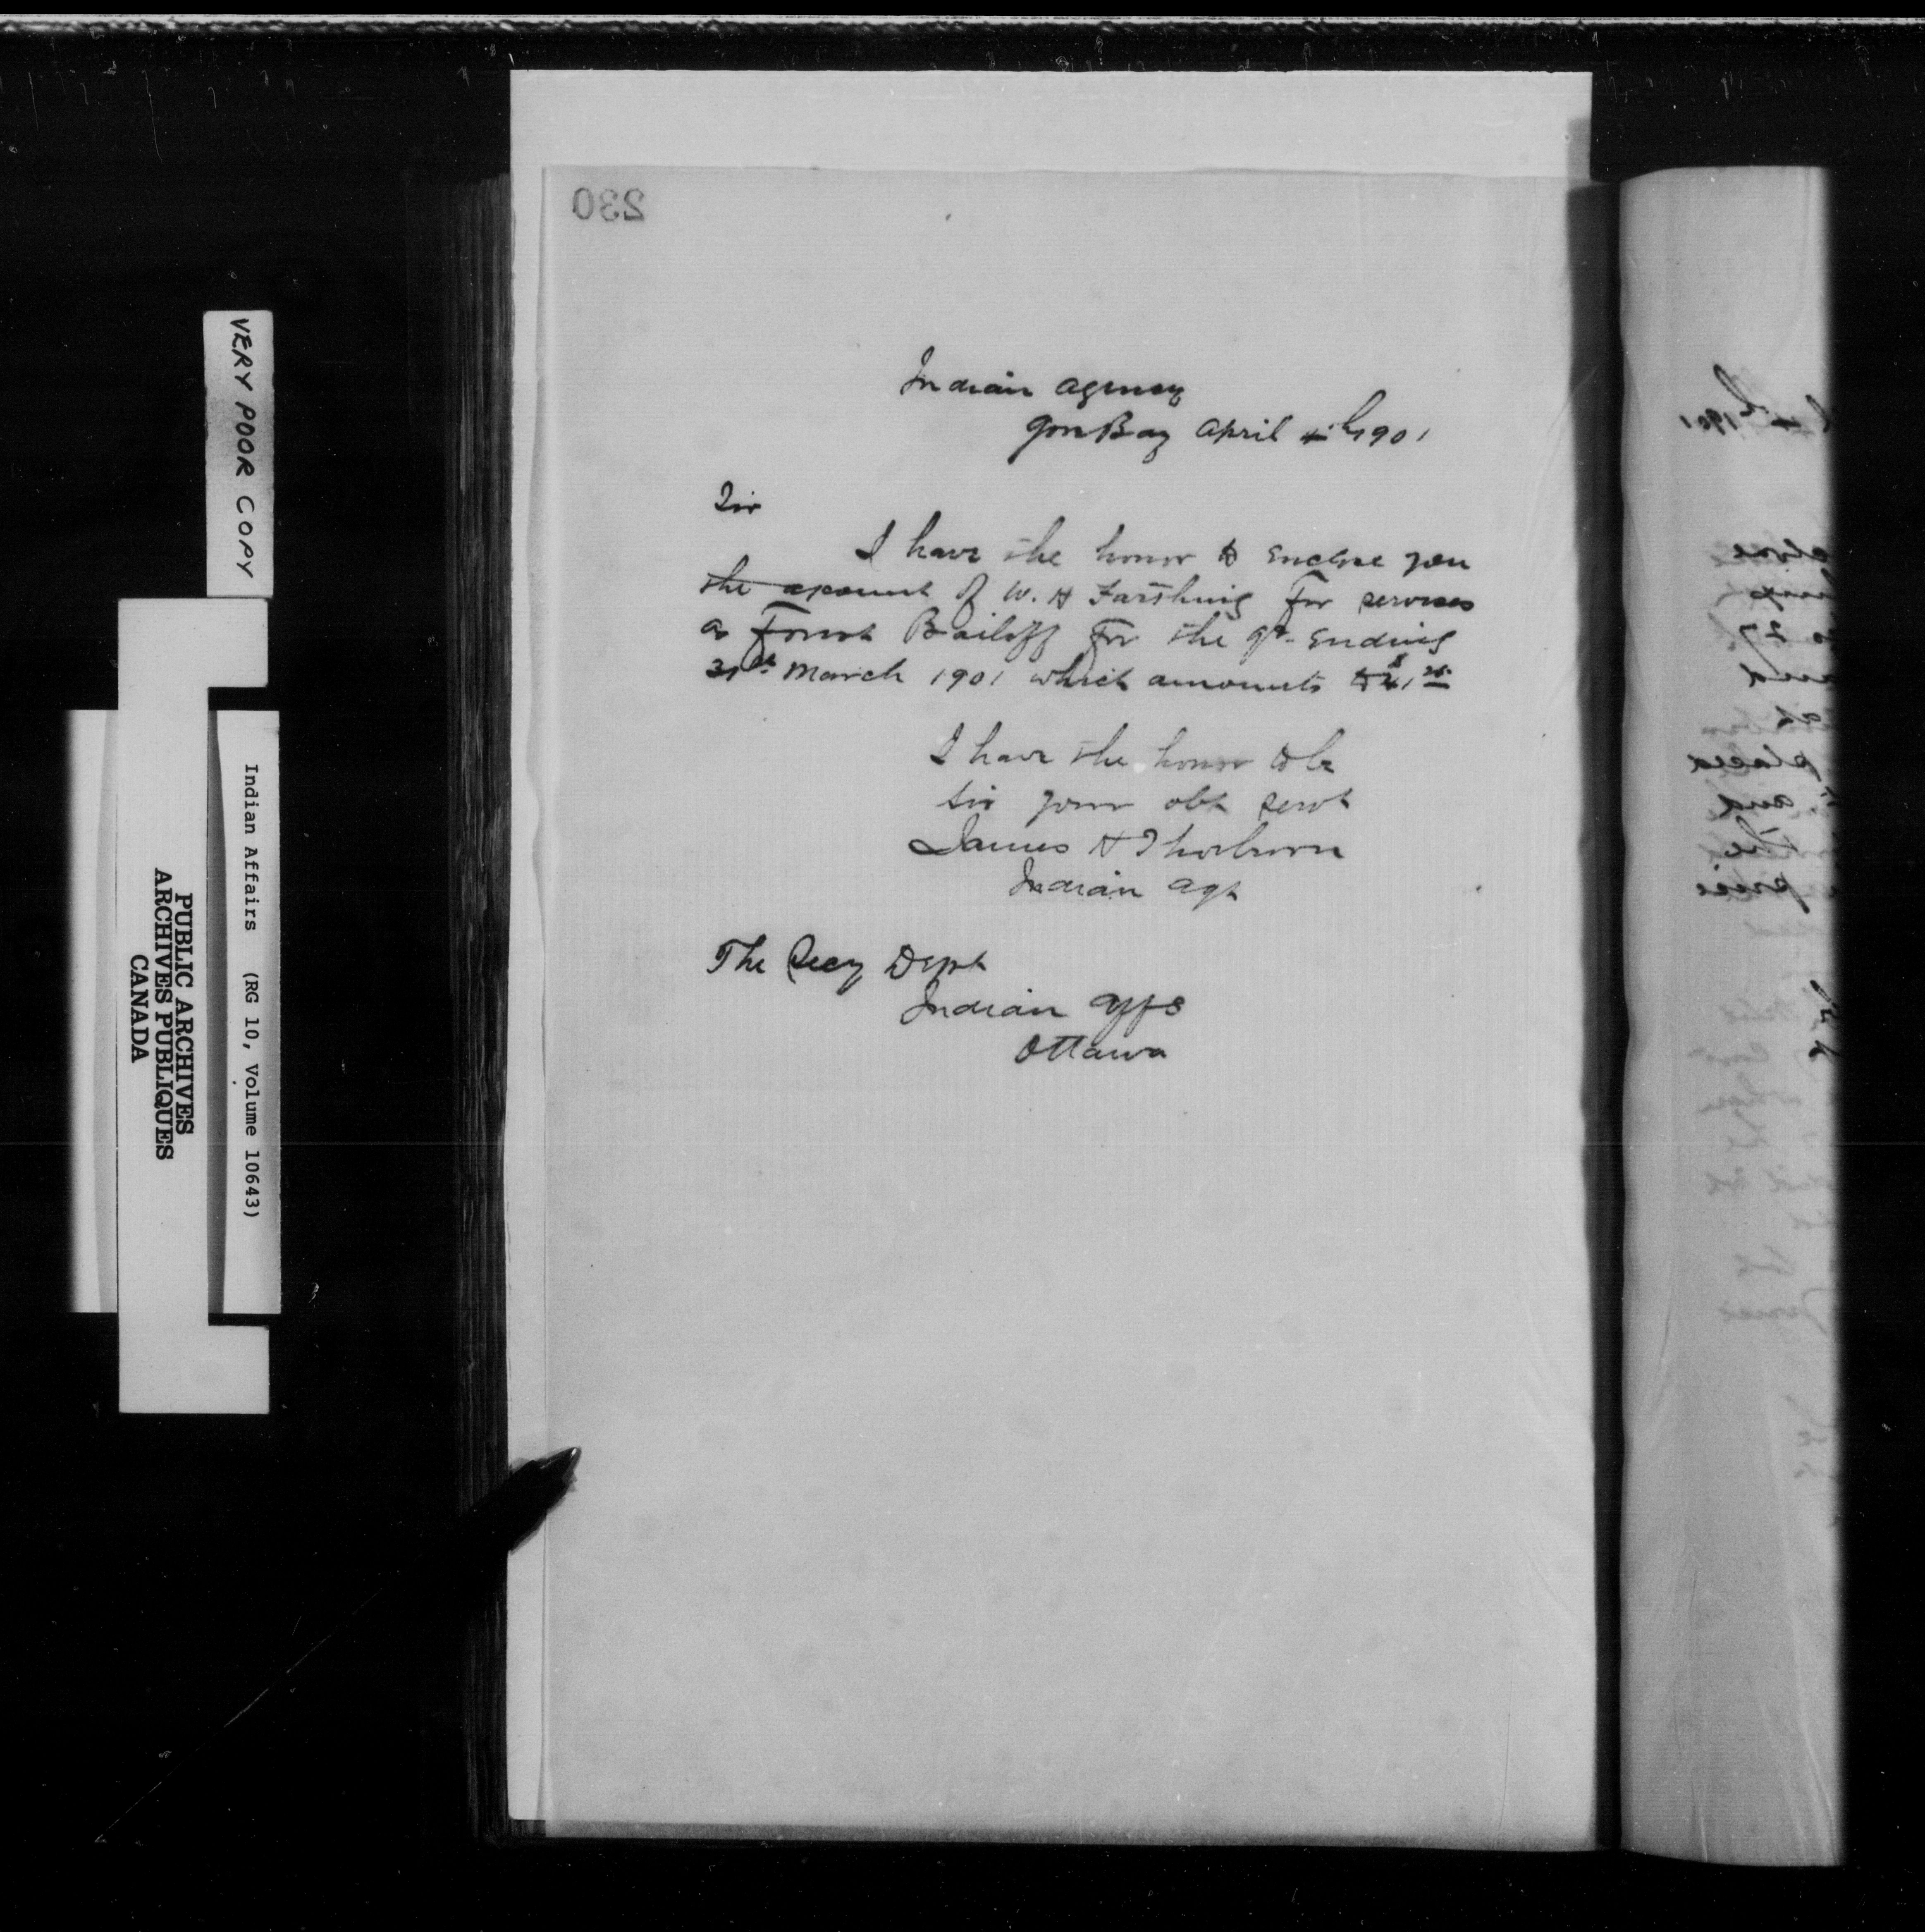 230
Indian Agency
Gore Bay April 4th 1901
Sir
I have the honor to enclose you
the account of W. H Farthing for services
as Forest Bailiff for the qr. Ending
31st March 1901 which amounts to $
I have the honor to be
Sir your obt servt
James H Thorburn
Indian Agt
The Secy Dept
Indian Affs
Ottawa
VERY POOR COPY
Indian Affairs (RG 10, Volume 10643)
PUBLIC ARCHIVES
ARCHIVES PUBLIQUES
CANADA
1901
placed
and
the
price